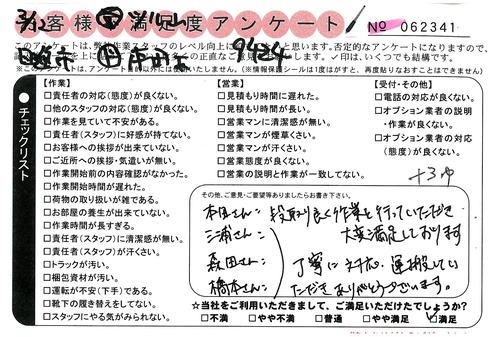 3/12
お客様満足度アンケート
No 062341
このアンケートは、弊社作業スタッフのレベル向上に
と思います。否定的なアンケートになりますので、
9424
※このアンケートは、アンケート目的以外には使用いたしません。(※情報保護シールは1度がはすと、再度貼りなおすことはできません)
チェックリスト
【作業】
□責任者の対応(態度)が良くない。
□他のスタッフの対応(態度)が良くない。
□作業を見ていて不安がある。
□責任者(スタッフ)に好感が持てない。
□お客様への挨拶が出来ていない。
□ご近所への挨拶・気遣いが無い。
□作業開始前の内容確認がなかった。
□作業開始時間が遅れた。
□荷物の取り扱いが雑である。
□お部屋の養生が出来ていない。
□作業時間が長すぎる。
□責任者(スタッフ)に清潔感が無い。
□責任者(スタッフ)が汗くさい。
□トラックが汚い。
□梱包資材が汚い。
□運転が不安(下手)である。
□靴下の履き替えをしてない。
□スタッフにやる気がみられない。
【営業】
□見積もり時間に遅れた。
□見積もり時間が長い。
□営業マンに清潔感が無い。
□営業マンが煙草くさい。
□営業マンが汗くさい。
□営業態度が良くない。
□営業の説明と作業が一致してない。
【受付・その他】
□電話の対応が良くない。
□オプション業者の説明・作業が良くない。
□オプション業者の対応(態度)が良くない。
その他、ご意見・ご要望等ありましたらお書き下さい。
本田さん: 段取り良く作業を行っていただき
大変満足しております
三浦さん:
森田さん:
橋本さん:
丁寧に対応、運搬してい
ただきありがとうございます。
☆当社をご利用いただきまして、ご満足いただけたでしょうか?
□不満 □やや不満 □普通 □やや満足 ☑満足